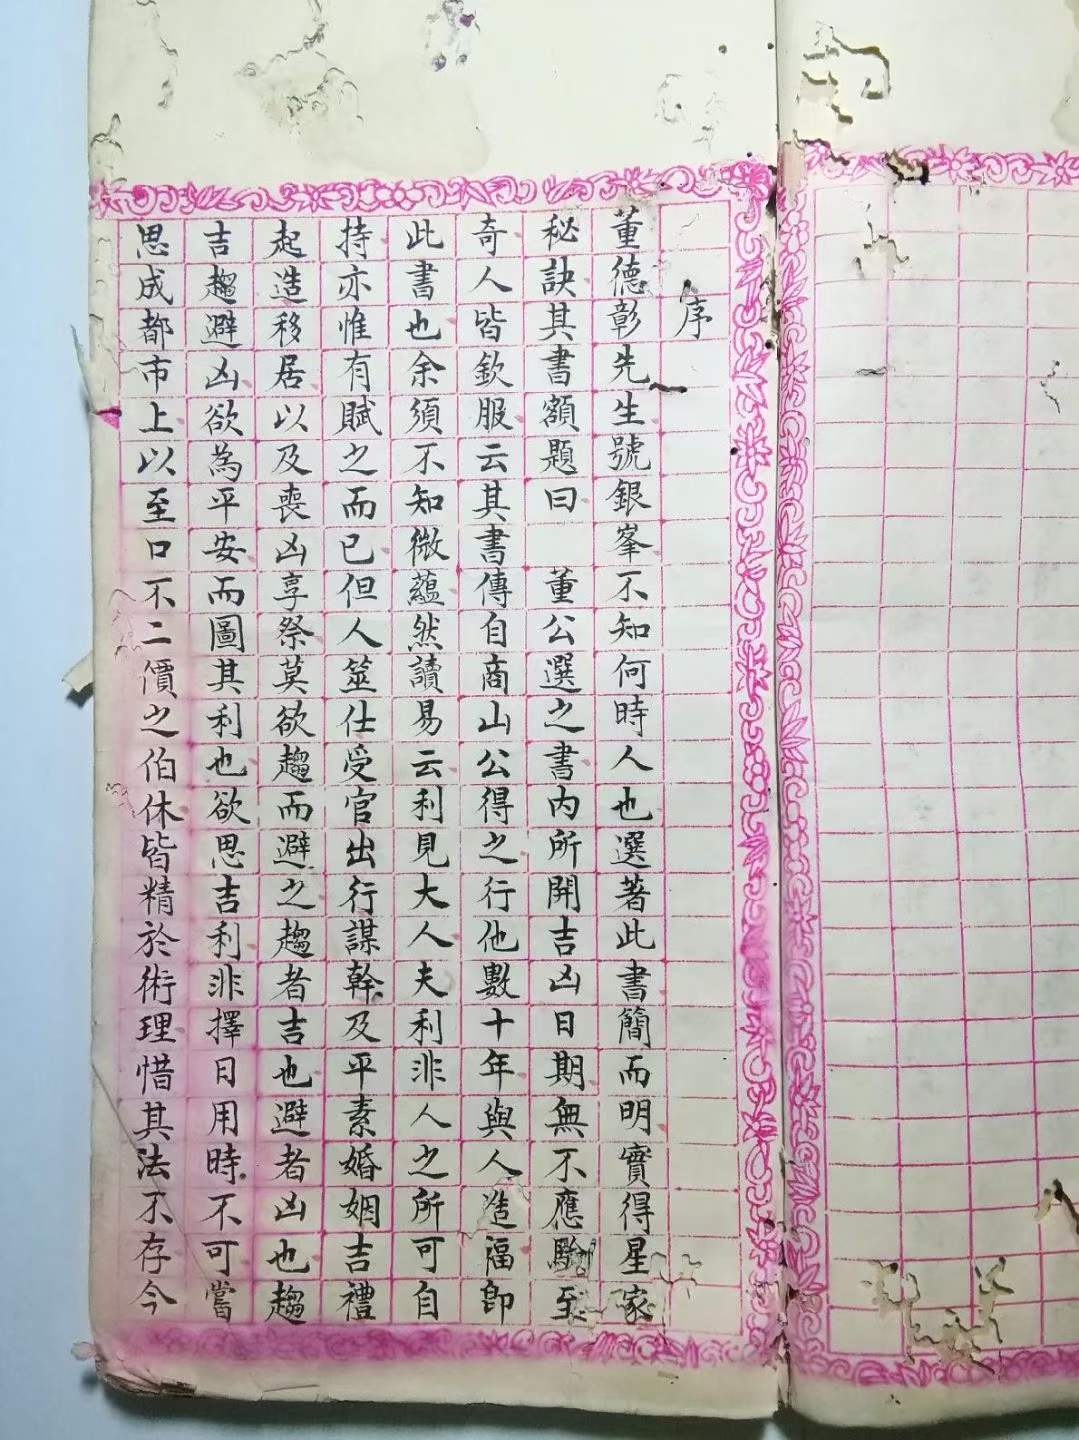 序
董德彰先生號銀峯不知何時人也選著此書簡而明實得星家
秘訣其書額題曰　董公選之書內所開吉凶日期無不應驗至
奇人皆欽服云其書傳自商山公得之行他數十年與人造福即
此書也余須不知微蘊然讀易云利見大人夫利非人之所可自
持亦惟有賦之而已但人筮仕受官出行謀幹及平素婚姻吉禮
起造移居以及喪凶享祭莫欲趨而避之趨者吉也避者凶也趨
吉趨避凶欲為平安而圖其利也欲思吉利非擇日用時不可嘗
思成都市上以至口不二價之伯休皆精於術理惜其法不存今